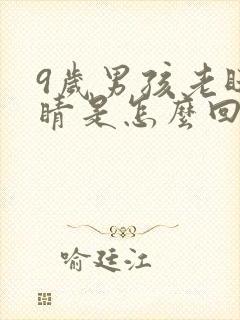 9歲男孩老眨
睛是怎麼回
喻廷江